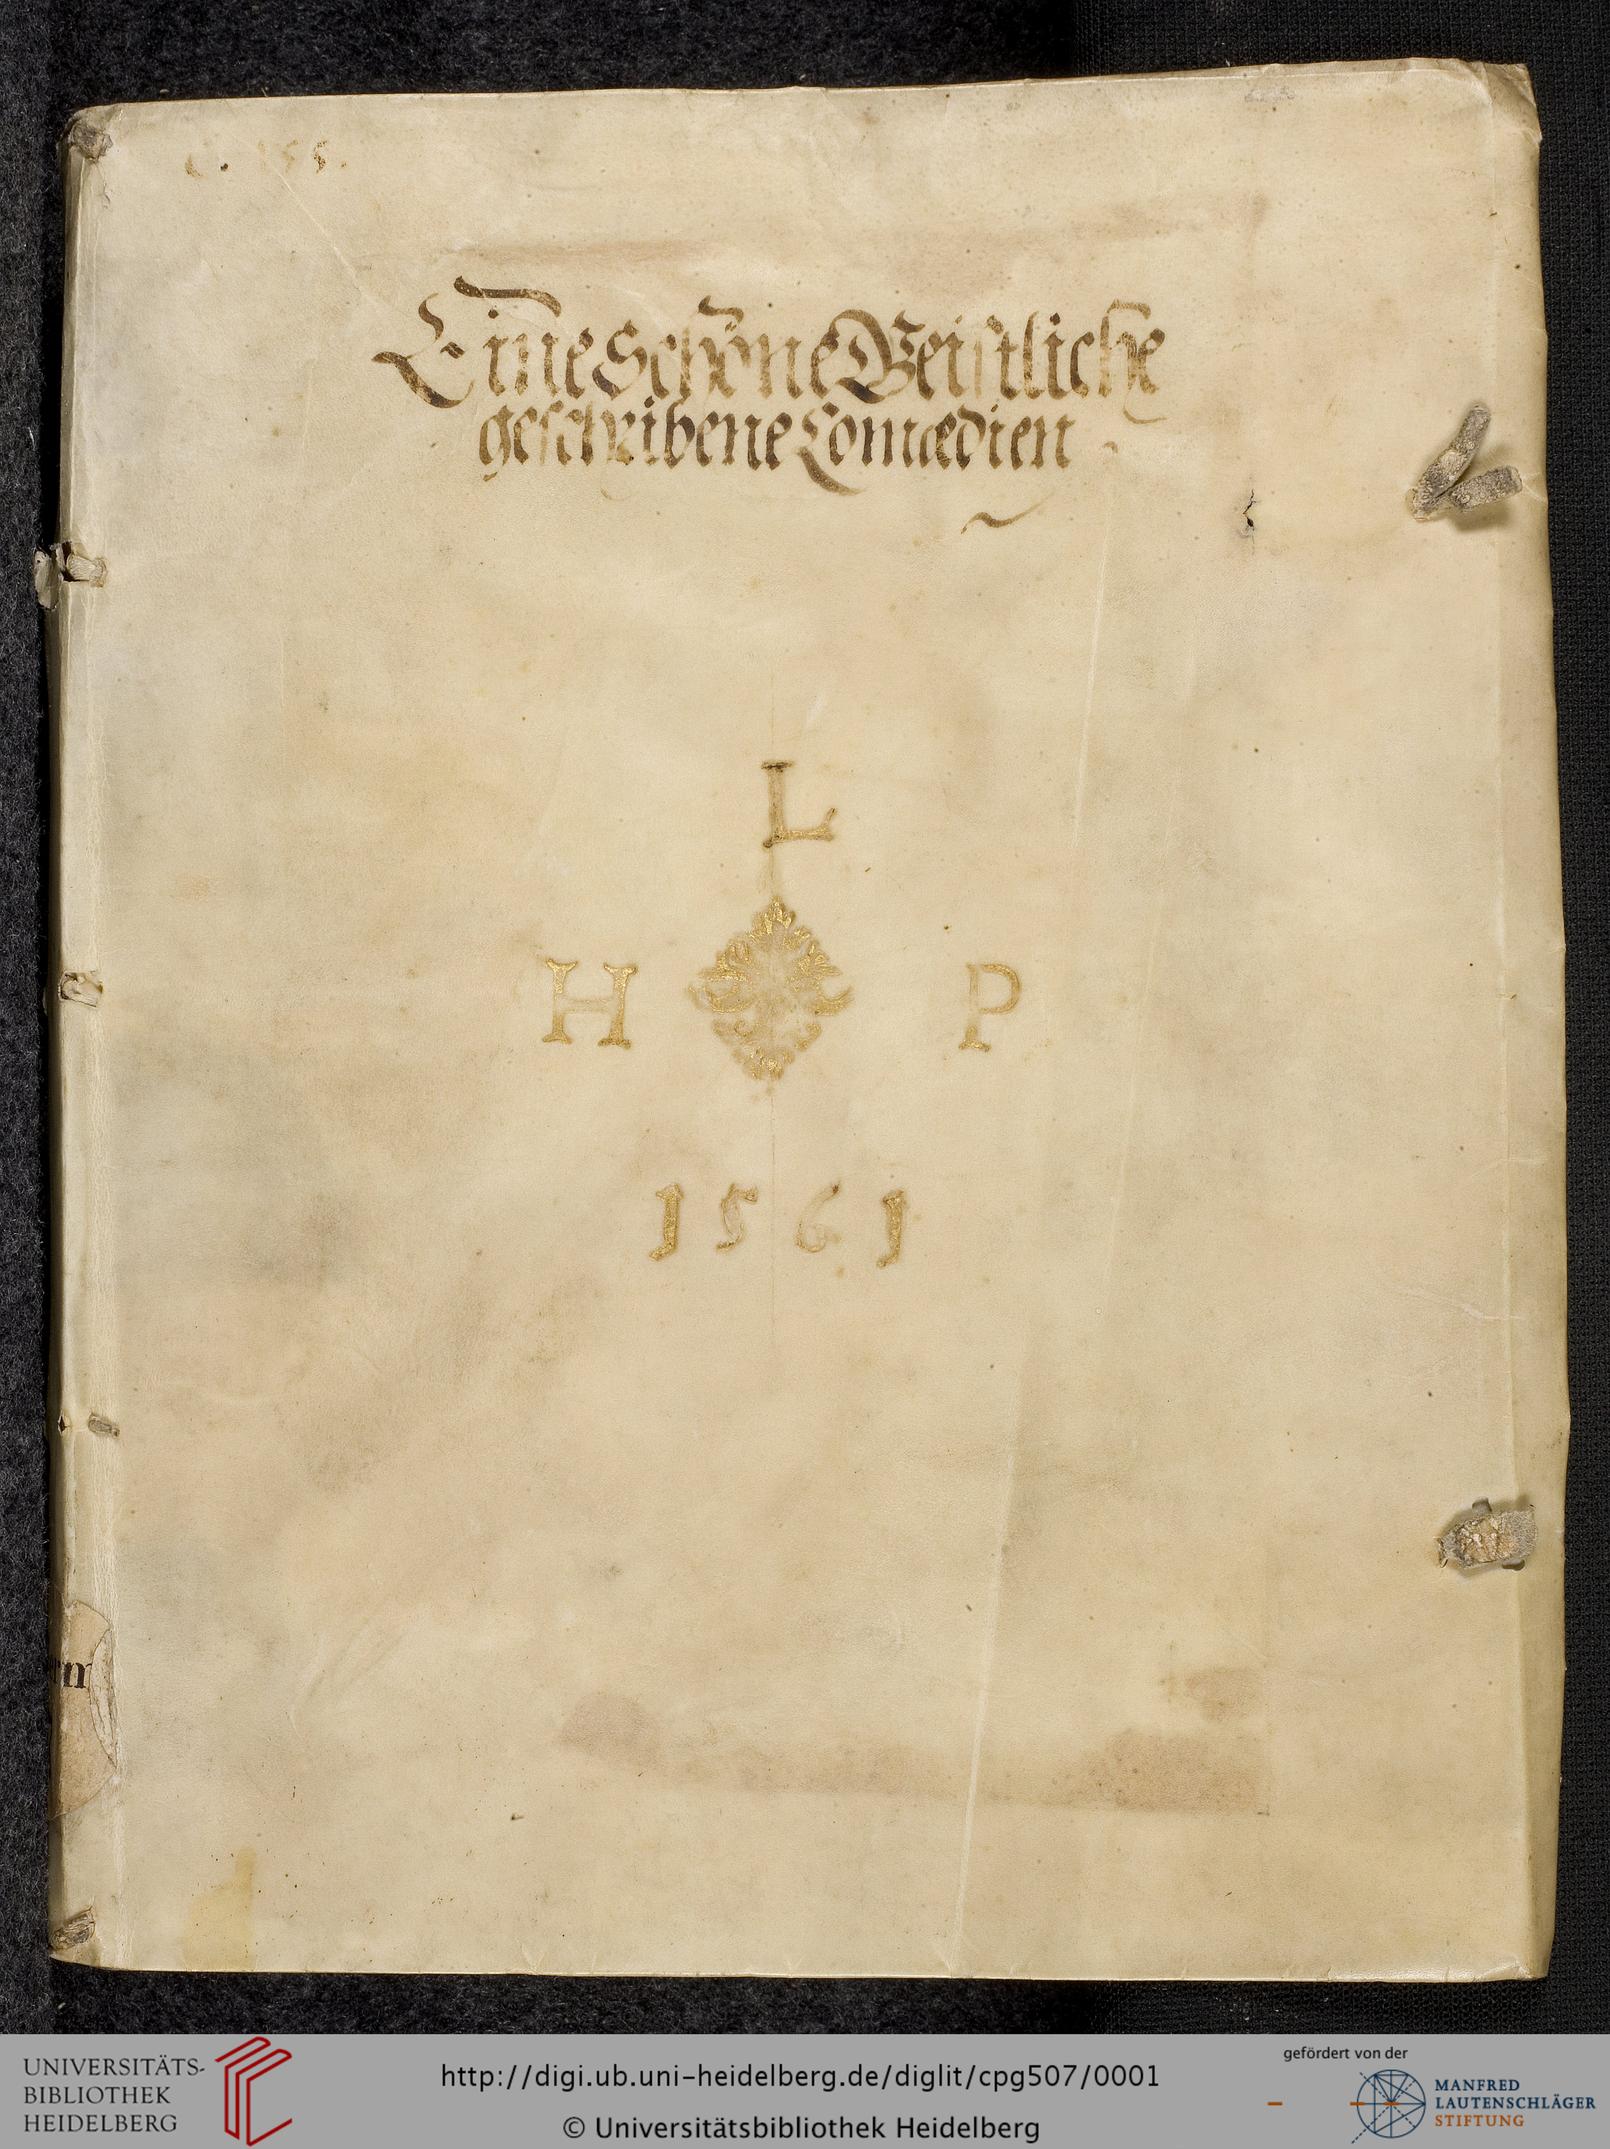 C. 155.
Eine Schöne Geistliche
geschribene Comœdien
L
H P
1561
UNIVERSITÄTS-
BIBLIOTHEK
HEIDELBERG
http://digi.ub.uni-heidelberg.de/diglit/cpg507/0001
© Universitätsbibliothek Heidelberg
gefördert von der
MANFRED
LAUTENSCHLÄGER
STIFTUNG